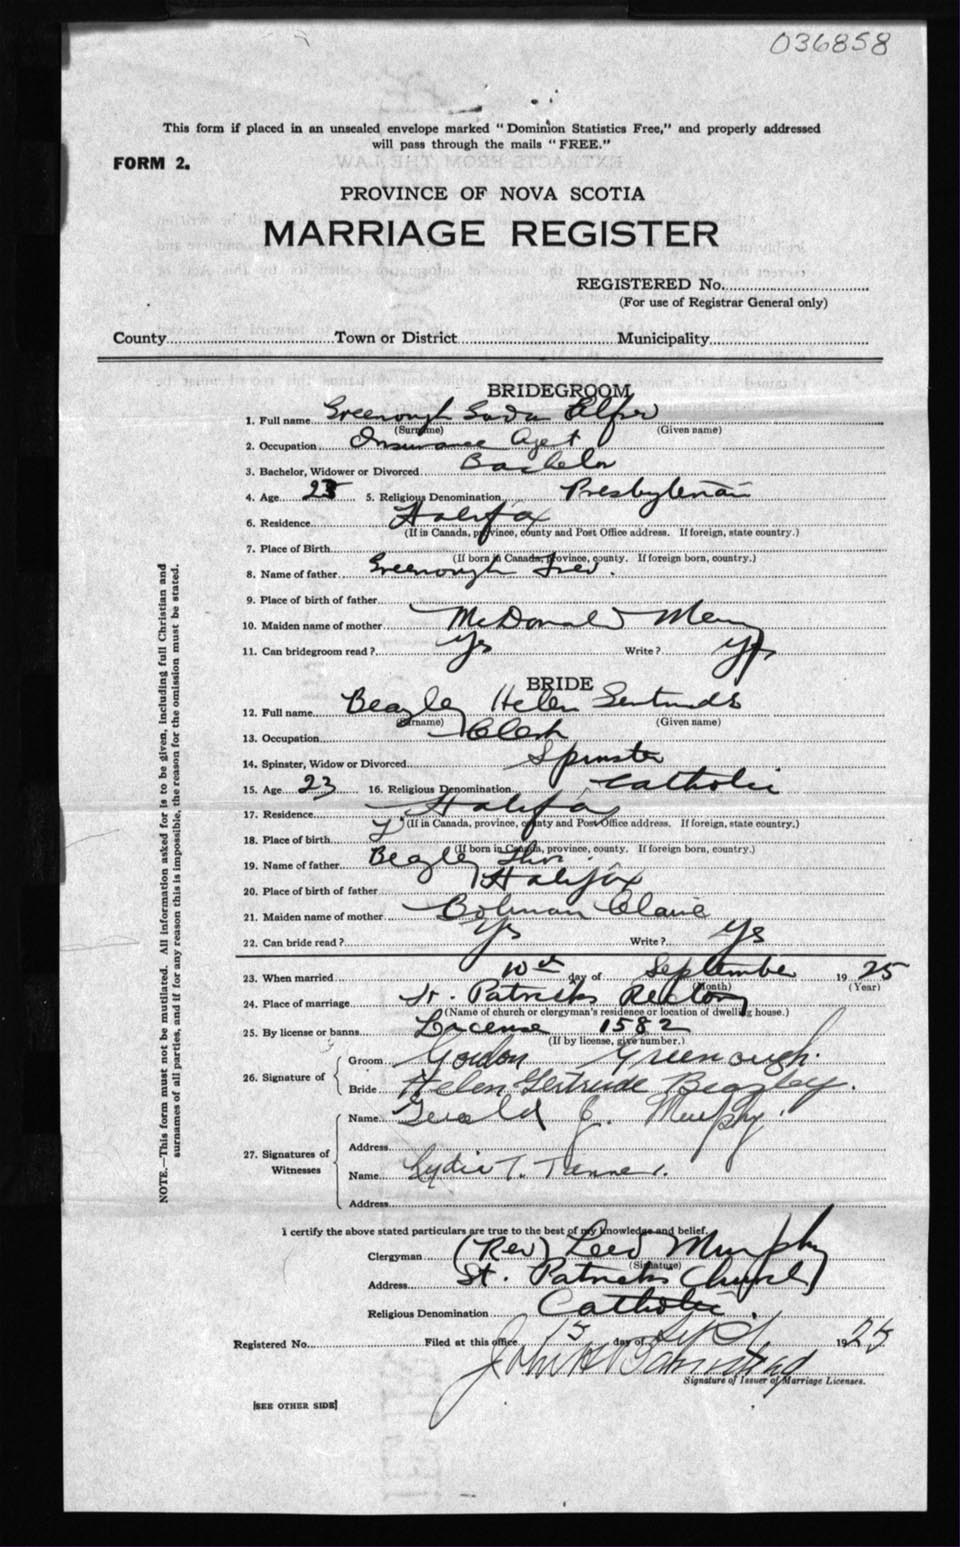 036858
This form if placed in an unsealed envelope marked "Dominion Statistics Free," and properly addressed
will pass through the mails "FREE."
FORM 2.
PROVINCE OF NOVA SCOTIA
MARRIAGE REGISTER
REGISTERED No.
(For use of Registrar General only)
County Town or District Municipality
NOTE.—This form must not be mutilated. All information asked for is to be given, including full Christian and
surnames of all parties, and if for any reason this is impossible, the reason for the omission must be stated.
BRIDEGROOM
1. Full name Greenough
(Surname) (Given name)
2. Occupation Insurance Aget
3. Bachelor, Widower or Divorced Bachelor
4. Age 25 5. Religious Denomination Presbyterian
6. Residence Halifax
(If in Canada, province, county and Post Office address. If foreign, state country.)
7. Place of Birth
(If born in Canada, province, county. If foreign born, country.)
8. Name of father Greenough Fred.
9. Place of birth of father
10. Maiden name of mother McDonald
11. Can bridegroom read? Yes Write? Yes
BRIDE
12. Full name Beazley Helen Gertrude
(Surname) (Given name)
13. Occupation Clerk
14. Spinster, Widow or Divorced Spinster
15. Age 23 16. Religious Denomination Catholic
17. Residence Halifax
(If in Canada, province, county and Post Office address. If foreign, state country.)
18. Place of birth
(If born in Canada, province, county. If foreign born, country.)
19. Name of father Beazley
20. Place of birth of father Halifax
21. Maiden name of mother Bolman
22. Can bride read? Yes Write? Yes
23. When married 10th day of September 1925
(Month) (Year)
24. Place of marriage St. Patricks Rectory
(Name of church or clergyman's residence or location of dwelling house.)
25. By license or banns License 1582
(If by license, give number.)
26. Signature of
Groom Gordon Greenough.
Bride Helen Gertrude Beazley.
27. Signatures of
Witnesses
Name Gerald J. Murphy
Address
Name Lydia T. Tanner.
Address
I certify the above stated particulars are true to the best of my knowledge and belief,
Clergyman (Rev) Murphy
(Signature)
Address St. Patricks Church
Religious Denomination Catholic.
Registered No. Filed at this office 15 day of Sept. 1925
Signature of Issuer of Marriage Licenses.
[SEE OTHER SIDE]